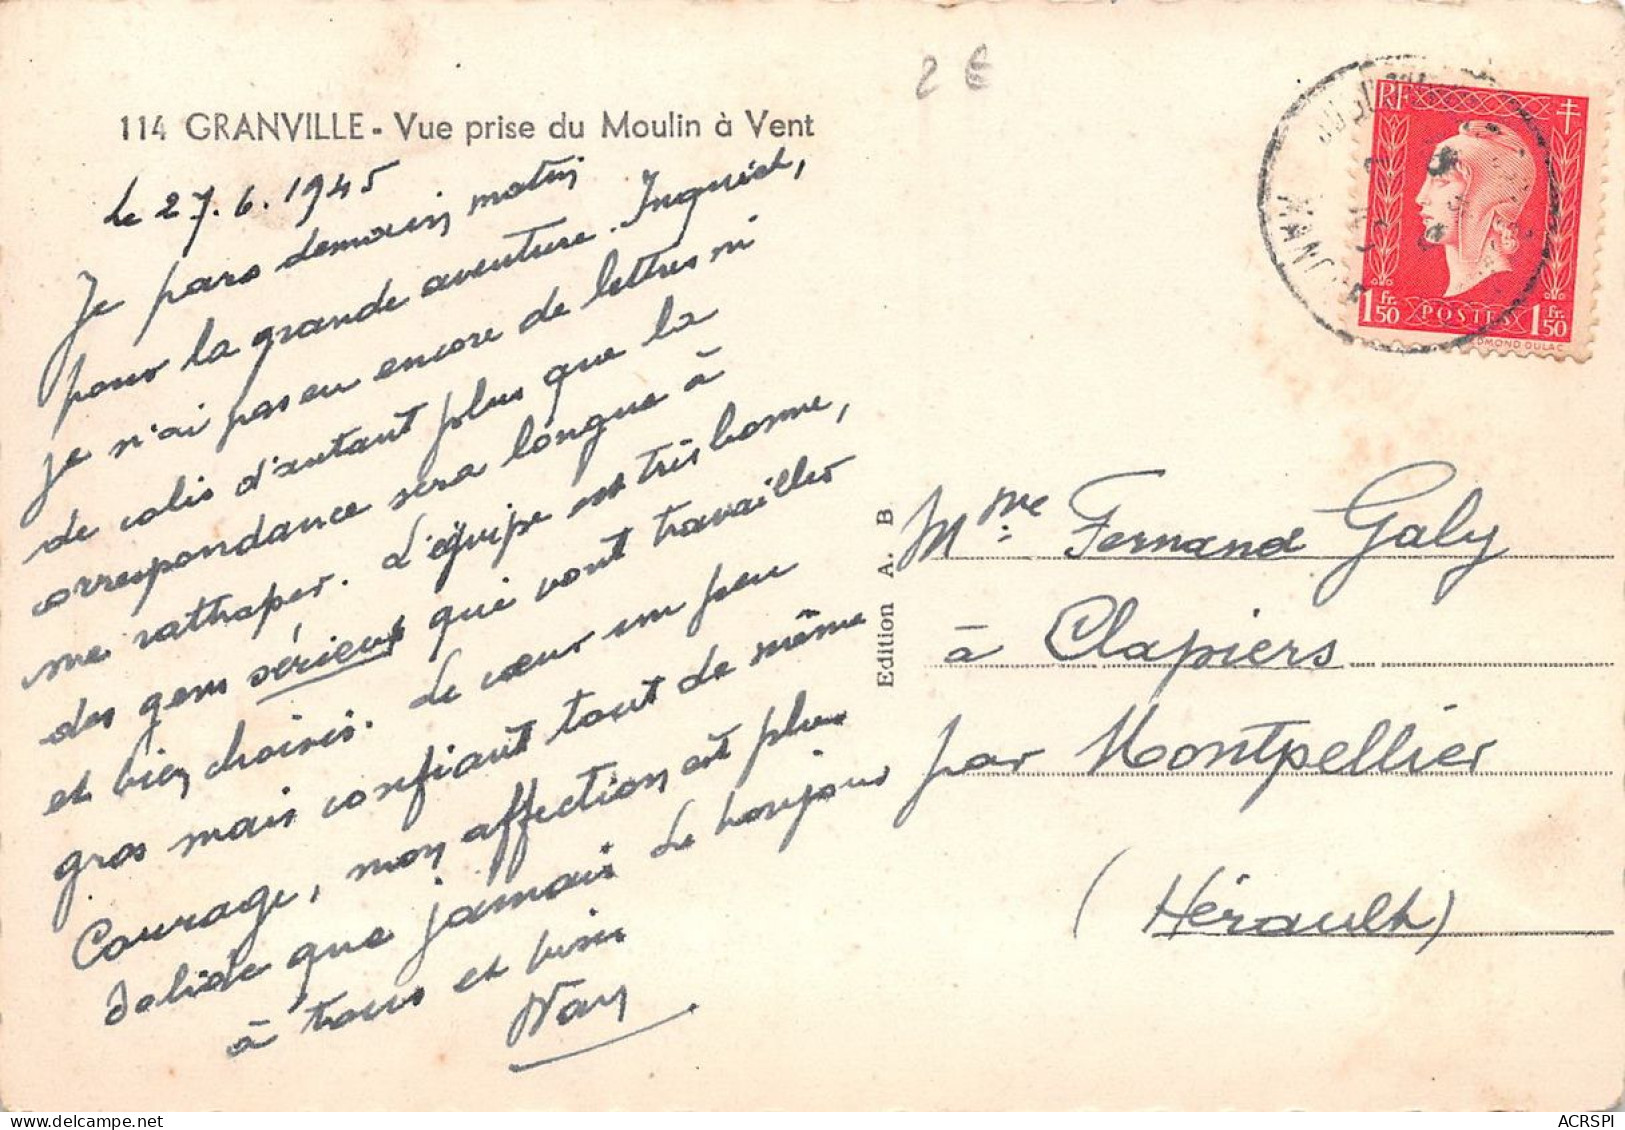 2 €
114 GRANVILLE - Vue prise du Moulin à Vent
le 27.6.1945
Je pars demain matin
pour la grande aventure. Inquiet,
je n'ai pas eu encore de lettres ni
de colis d'autant plus que la
correspondance sera longue à
me rattraper. L'équipe est très bonne,
des gens sérieux qui vont travailler
et bien choisis. Le cœur un peu
gros mais confiant tout de même
Courage, mon affection est plus
solide que jamais. Le bonjour
à tous et bises
RF
1 Fr. 50 POSTES 1 Fr. 50
EDMOND DULAC
Edition A. B
Mme Fernand Galy
à Clapiers
par Montpellier
(Hérault)
ACRSPI